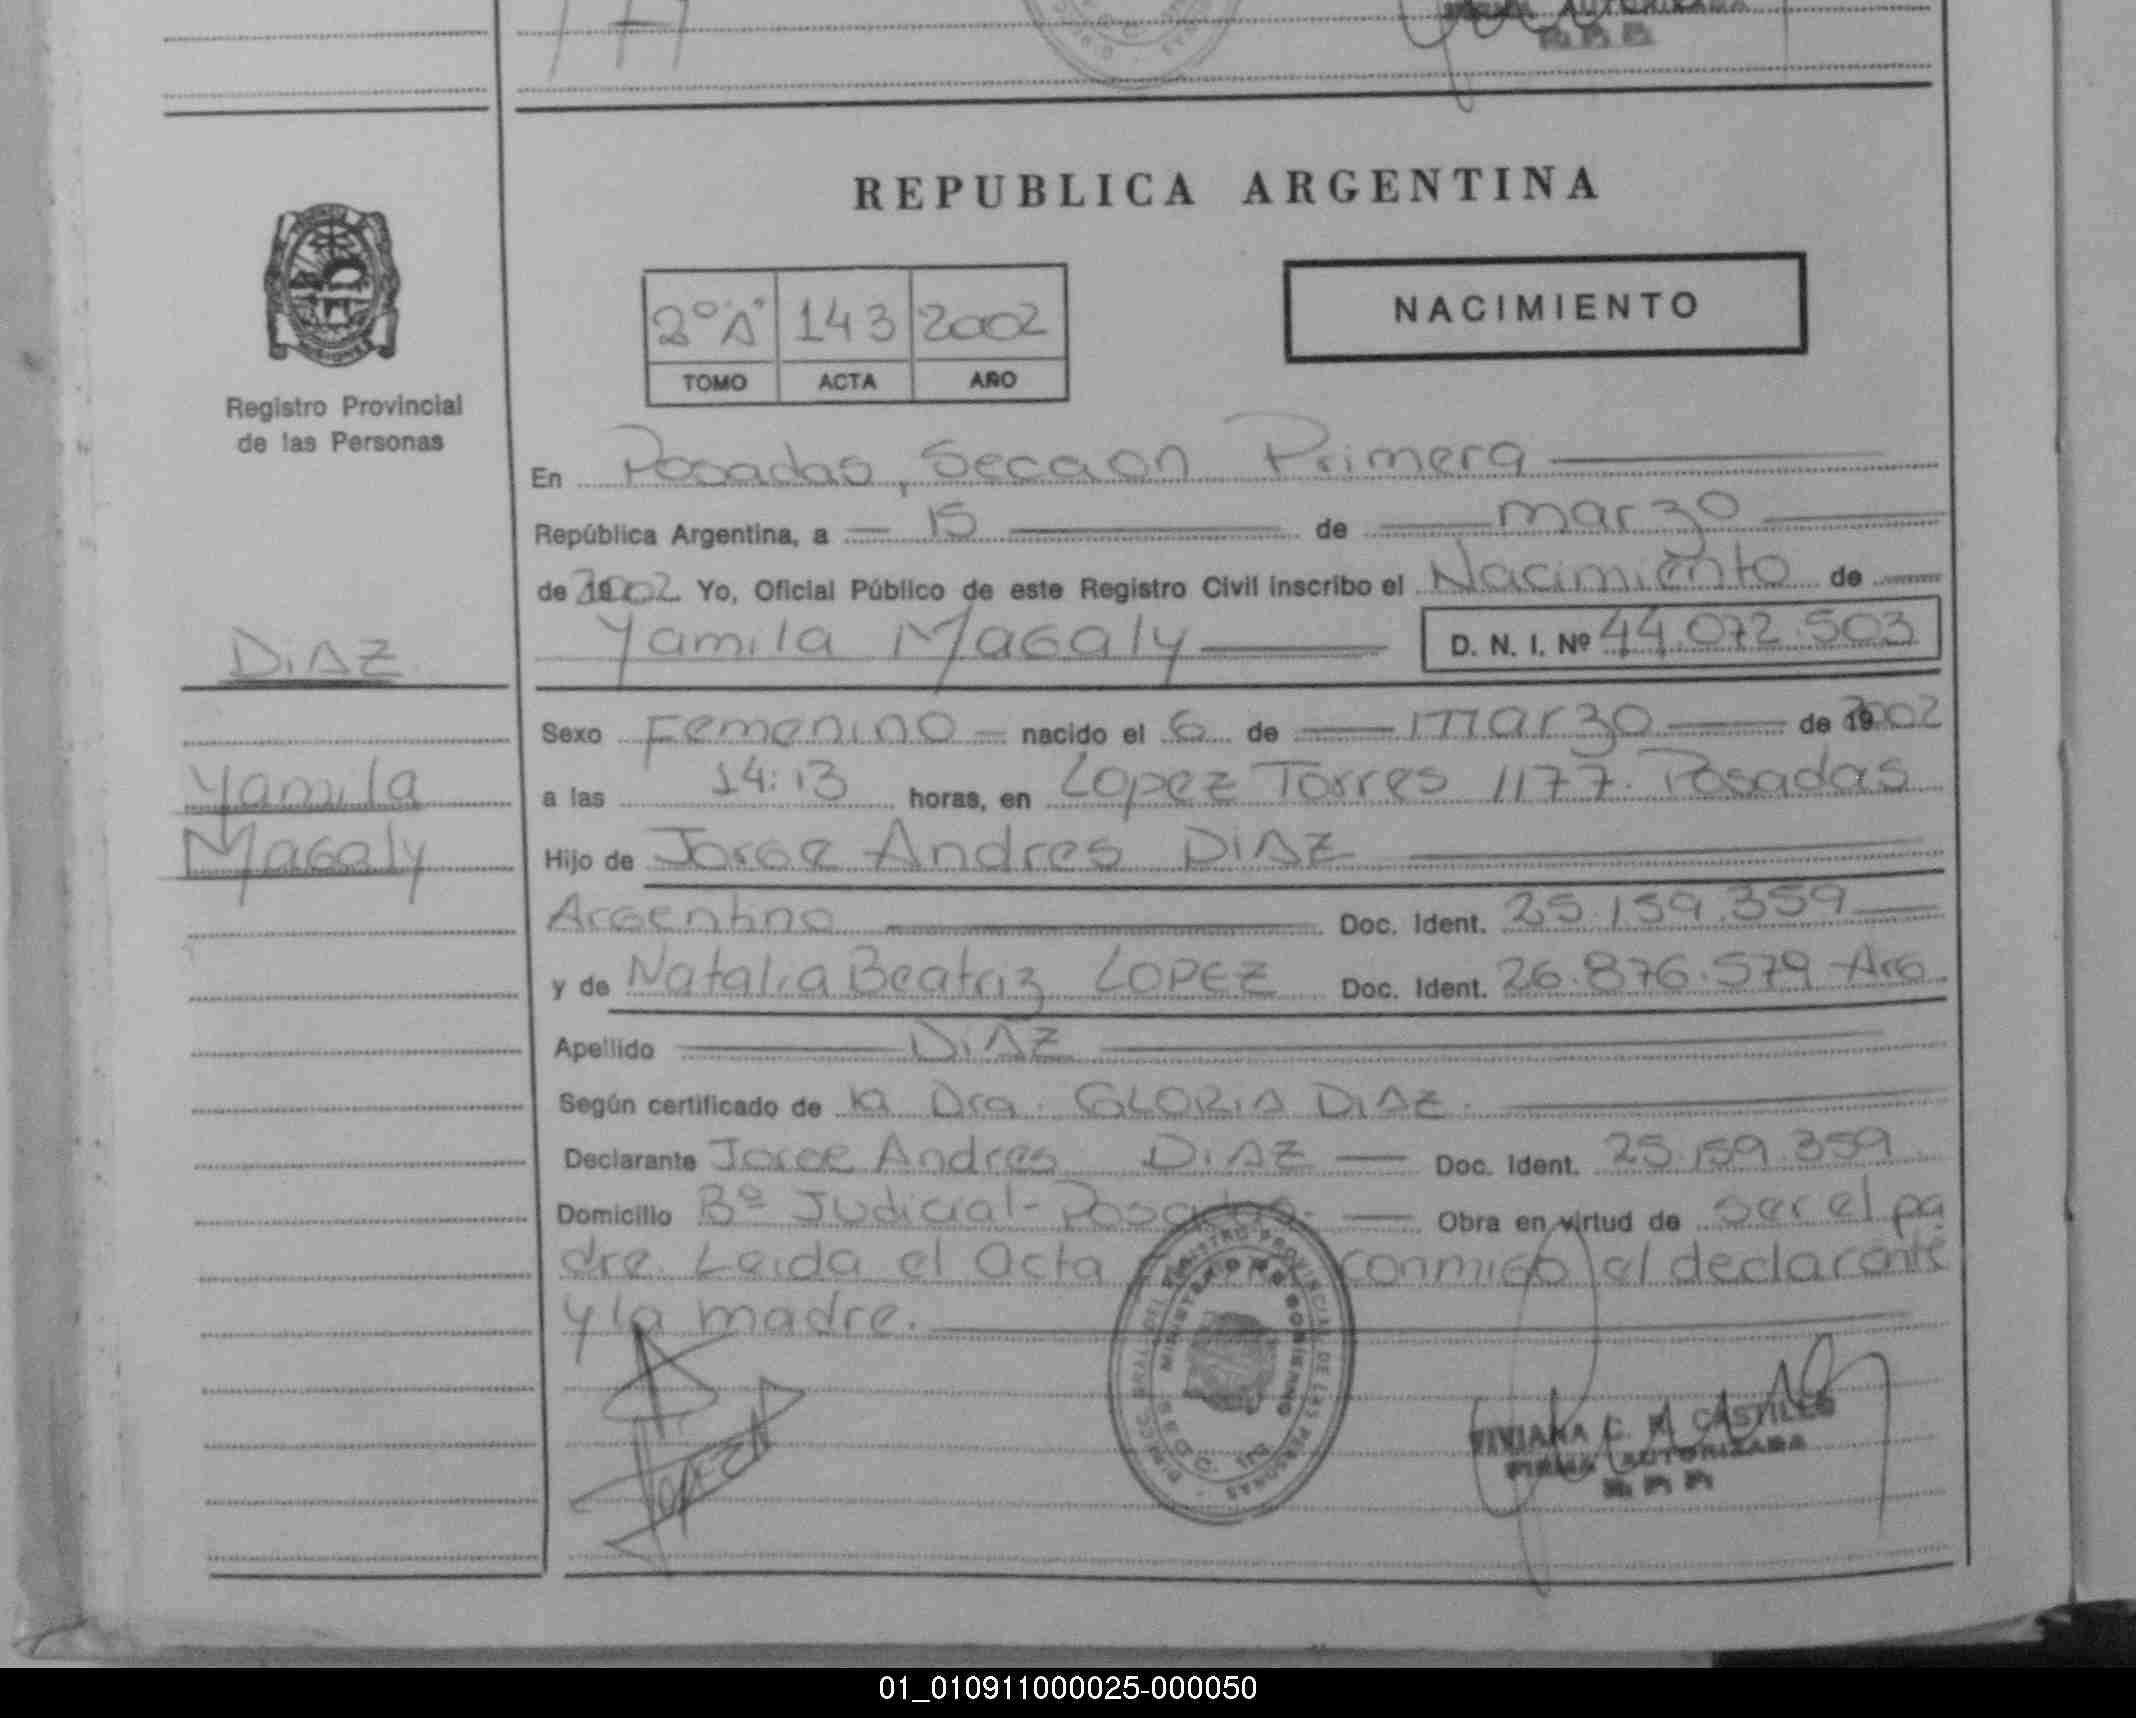 FIRMA AUTORIZADA
REPUBLICA ARGENTINA
2º "A" 143 2002
TOMO ACTA AÑO
NACIMIENTO
Registro Provincial
de las Personas
En Posadas, Seccion Primera
República Argentina, a 15 de marzo
de 2002 Yo, Oficial Público de este Registro Civil inscribo el Nacimiento de
Yamila Magaly D. N. I. Nº 44.072.503
DiAZ
Sexo Femenino nacido el 6 de marzo de 2002
Yamila
a las 14:13 horas, en Lopez Torres 1177. Posadas
Magaly
Hijo de Jorge Andres DiAZ
Argentino Doc. Ident. 25.159.359
y de Natalia Beatriz LOPEZ Doc. Ident. 26.876.579 Arg.
Apellido DiAZ
Según certificado de la Dra. GLORIA DiAZ.
Declarante Jorge Andres DiAZ Doc. Ident. 25.159.359
Domicilio Bº Judicial - Posadas. Obra en virtud de ser el pa
dre. Leida el Acta conmigo el declarante
y la madre.
VIVIANA C. CASTILLO
FIRMA AUTORIZADA
01_010911000025-000050